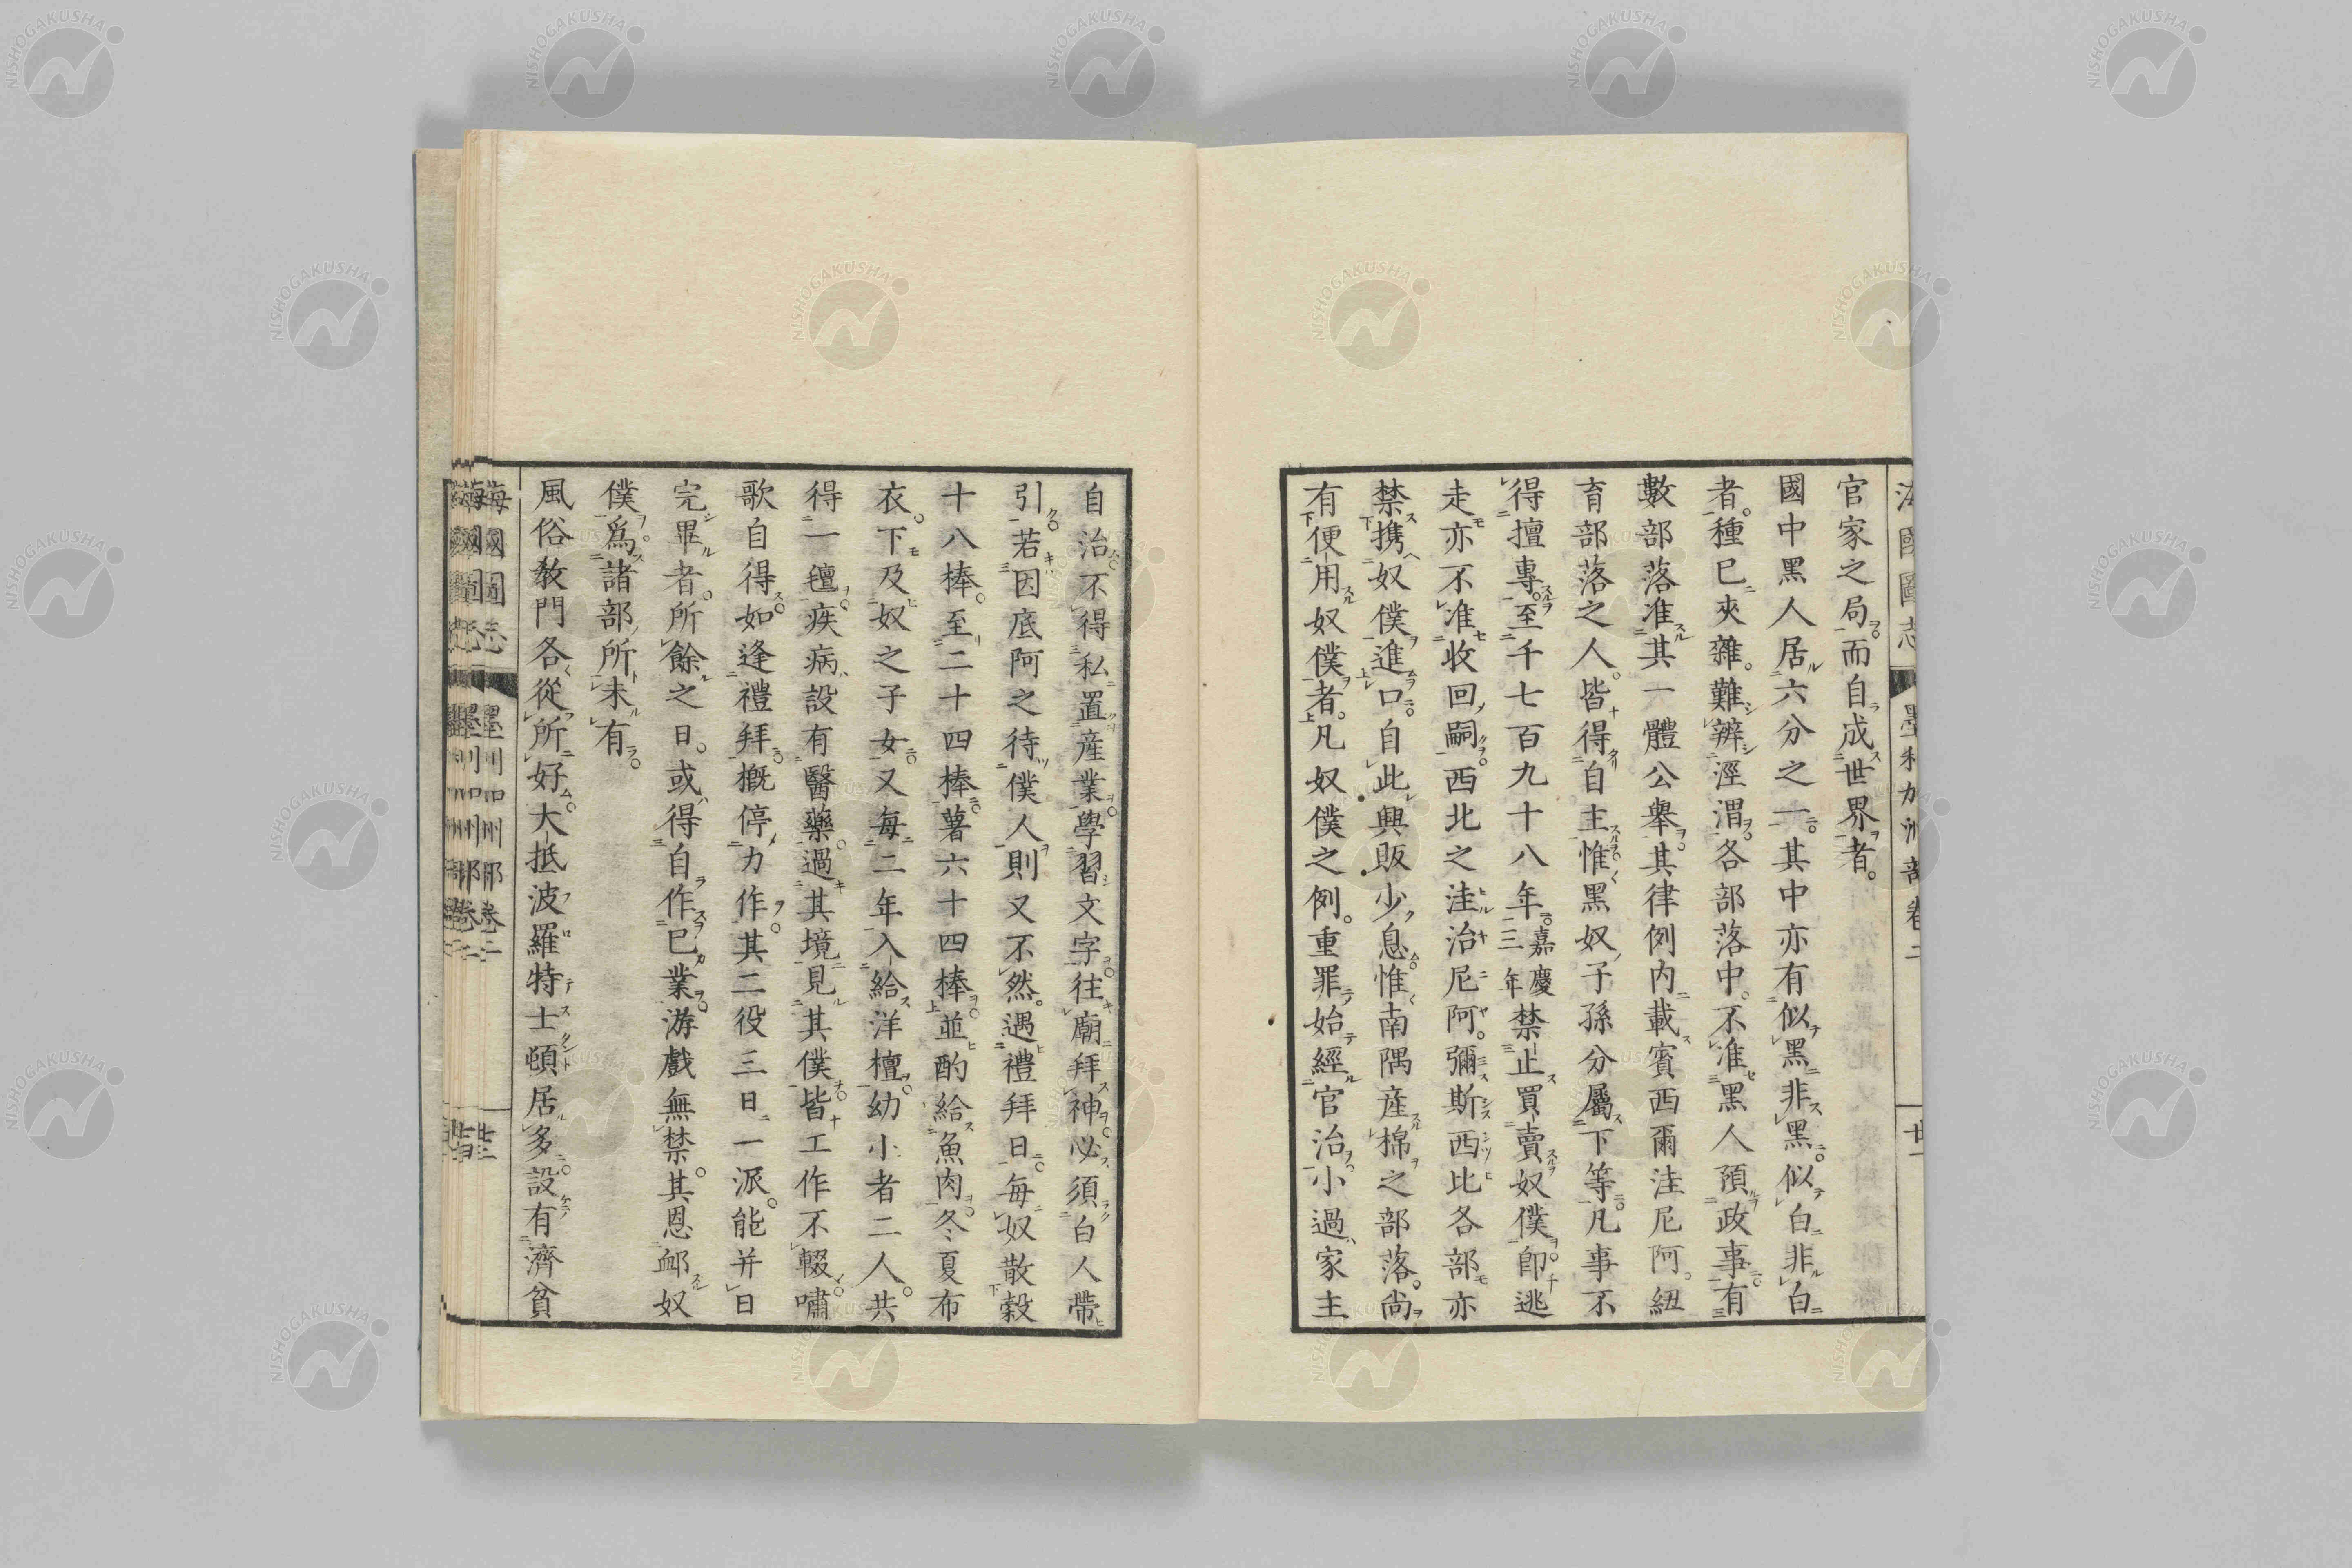 官家之局而自成世界者。
國中黑人居六分之一其中亦有似黑非黑似白非白
者。種已夾雜。難辨涇渭。各部落中。不准黑人預政事有
數部落准其一體公舉其律例內載賓西爾洼尼阿。紐
育部落之人。皆得自主惟黑奴子孫分屬下等。凡事不
得擅專至千七百九十八年嘉慶三年禁止買賣奴僕卽逃
走亦不准收回嗣西北之洼治尼阿。彌斯西比各部亦
禁携奴僕進口自此興販少息惟南隅産棉之部落尙
有便用奴僕者。凡奴僕之例。重罪始經官治小過家主
自治不得私置産業學習文字往廟拜神必須白人帶
引若因底阿之待僕人則又不然。遇禮拜日每奴散穀
十八棒。至二十四棒薯六十四棒並酌給魚肉冬夏布
衣。下及奴之子女又每二年入給洋檀幼小者二人。共
得一氊疾病設有醫藥。過其境見其僕皆工作不輟嘯
歌自得如逢禮拜概停力作其二役三日一派。能并日
完畢者。所餘之日。或得自作已業游戲無禁。其恩卹奴
僕爲諸部所未有。
風俗教門各從所好大抵波羅特士頓居多設有濟貧
海國圖志
墨利加洲部卷二
廿一
NISHOGAKUSHA